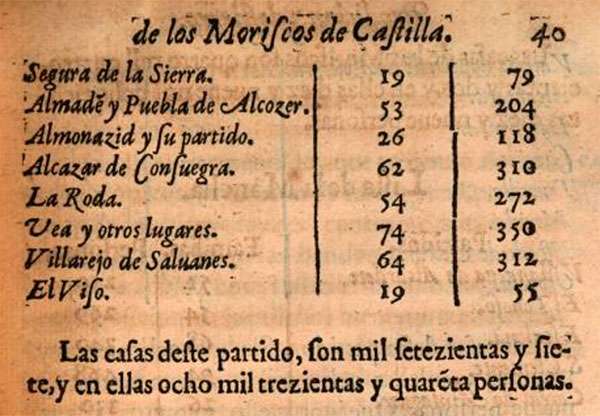 de los Moriſcos de Caſtilla. 40
Segura de la Sierra. 19 79
Almadẽ y Puebla de Alcozer. 53 204
Almonazid y ſu partido. 26 118
Alcazar de Conſuegra. 62 310
La Roda. 54 272
Vea y otros lugares. 74 350
Villarejo de Saluanes. 64 312
El Viſo. 19 55
Las caſas deſte partido, ſon mil ſetezientas y ſie-
te, y en ellas ocho mil trezientas y quarẽta perſonas.